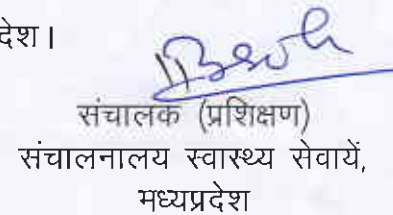 देश।
संचालक (प्रशिक्षण)
संचालनालय स्वास्थ्य सेवायें,
मध्यप्रदेश